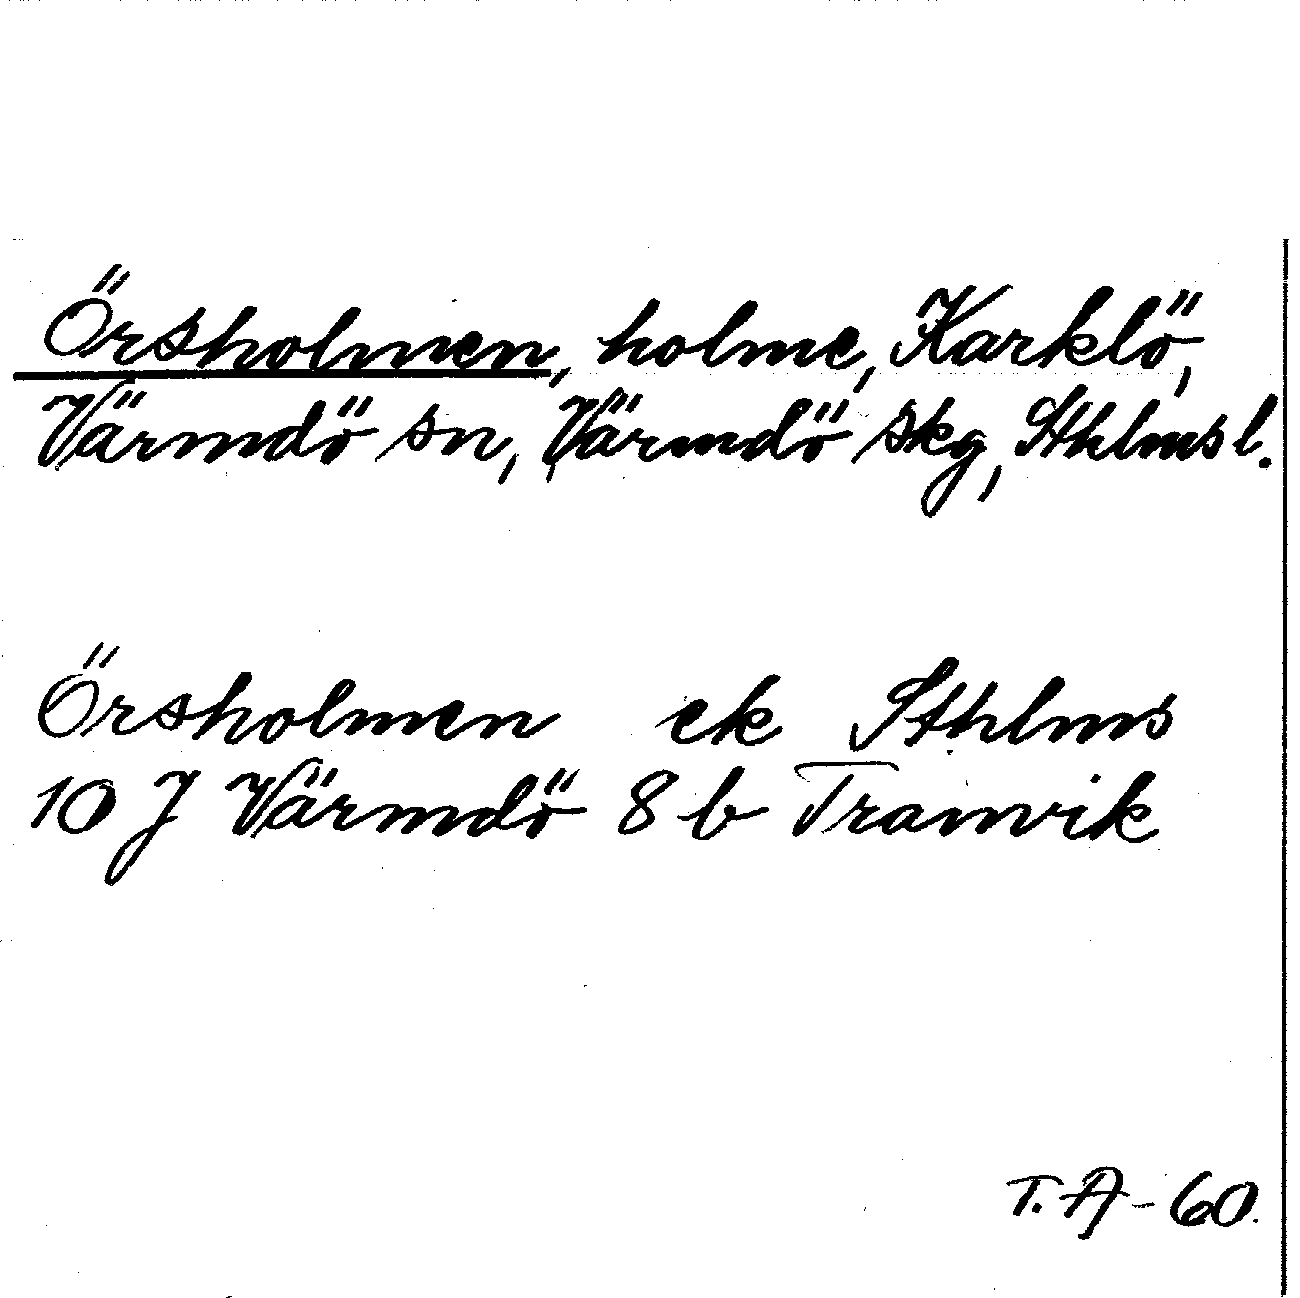 Örsholmen, holme, Karklö,
Värmdö sn, Värmdö skg, Sthlms l.
Örsholmen ek Sthlms
10 J Värmdö 8 b Tranvik
T. A - 60.